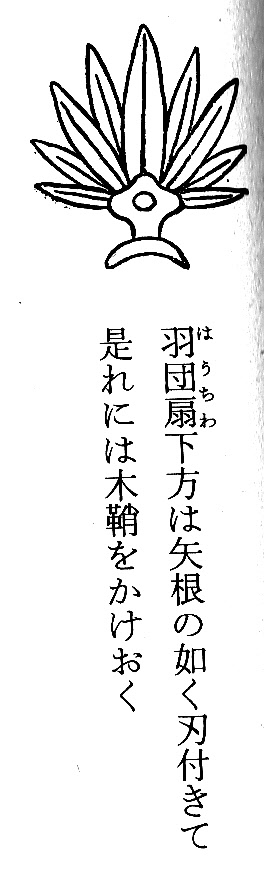 羽団扇下方は矢根の如く刃付きて
はうちわ
是れには木鞘をかけおく